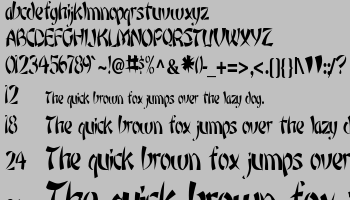 abcdefghijklmnopqrstuvwxyz
ABCDEFGHIJKLMNOPQRSTUVWXYZ
0123456789`~!@#$%^&*()-_+=>,<.{}[]\|"':;/?
12 The quick brown fox jumps over the lazy dog.
18 The quick brown fox jumps over the lazy d
24 The quick brown fox jumps over
The quick brown fox